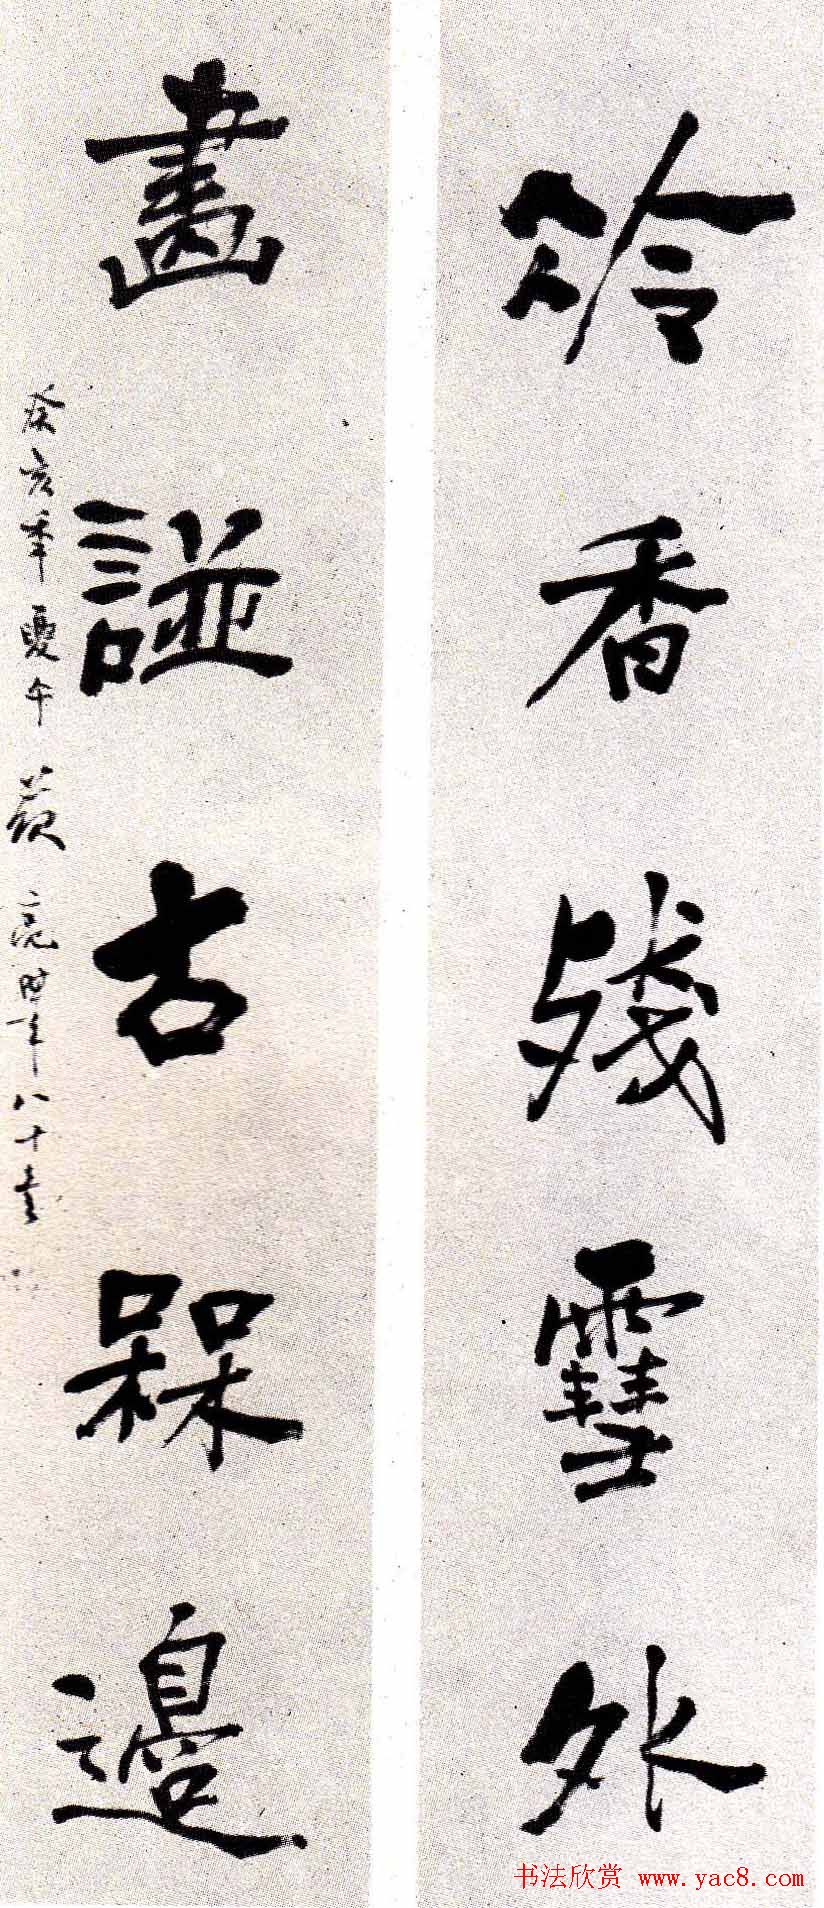 冷香殘䨮外
畫諩古槑邊
癸亥秊夏午 亮時年八十
书法欣赏 www.yac8.com